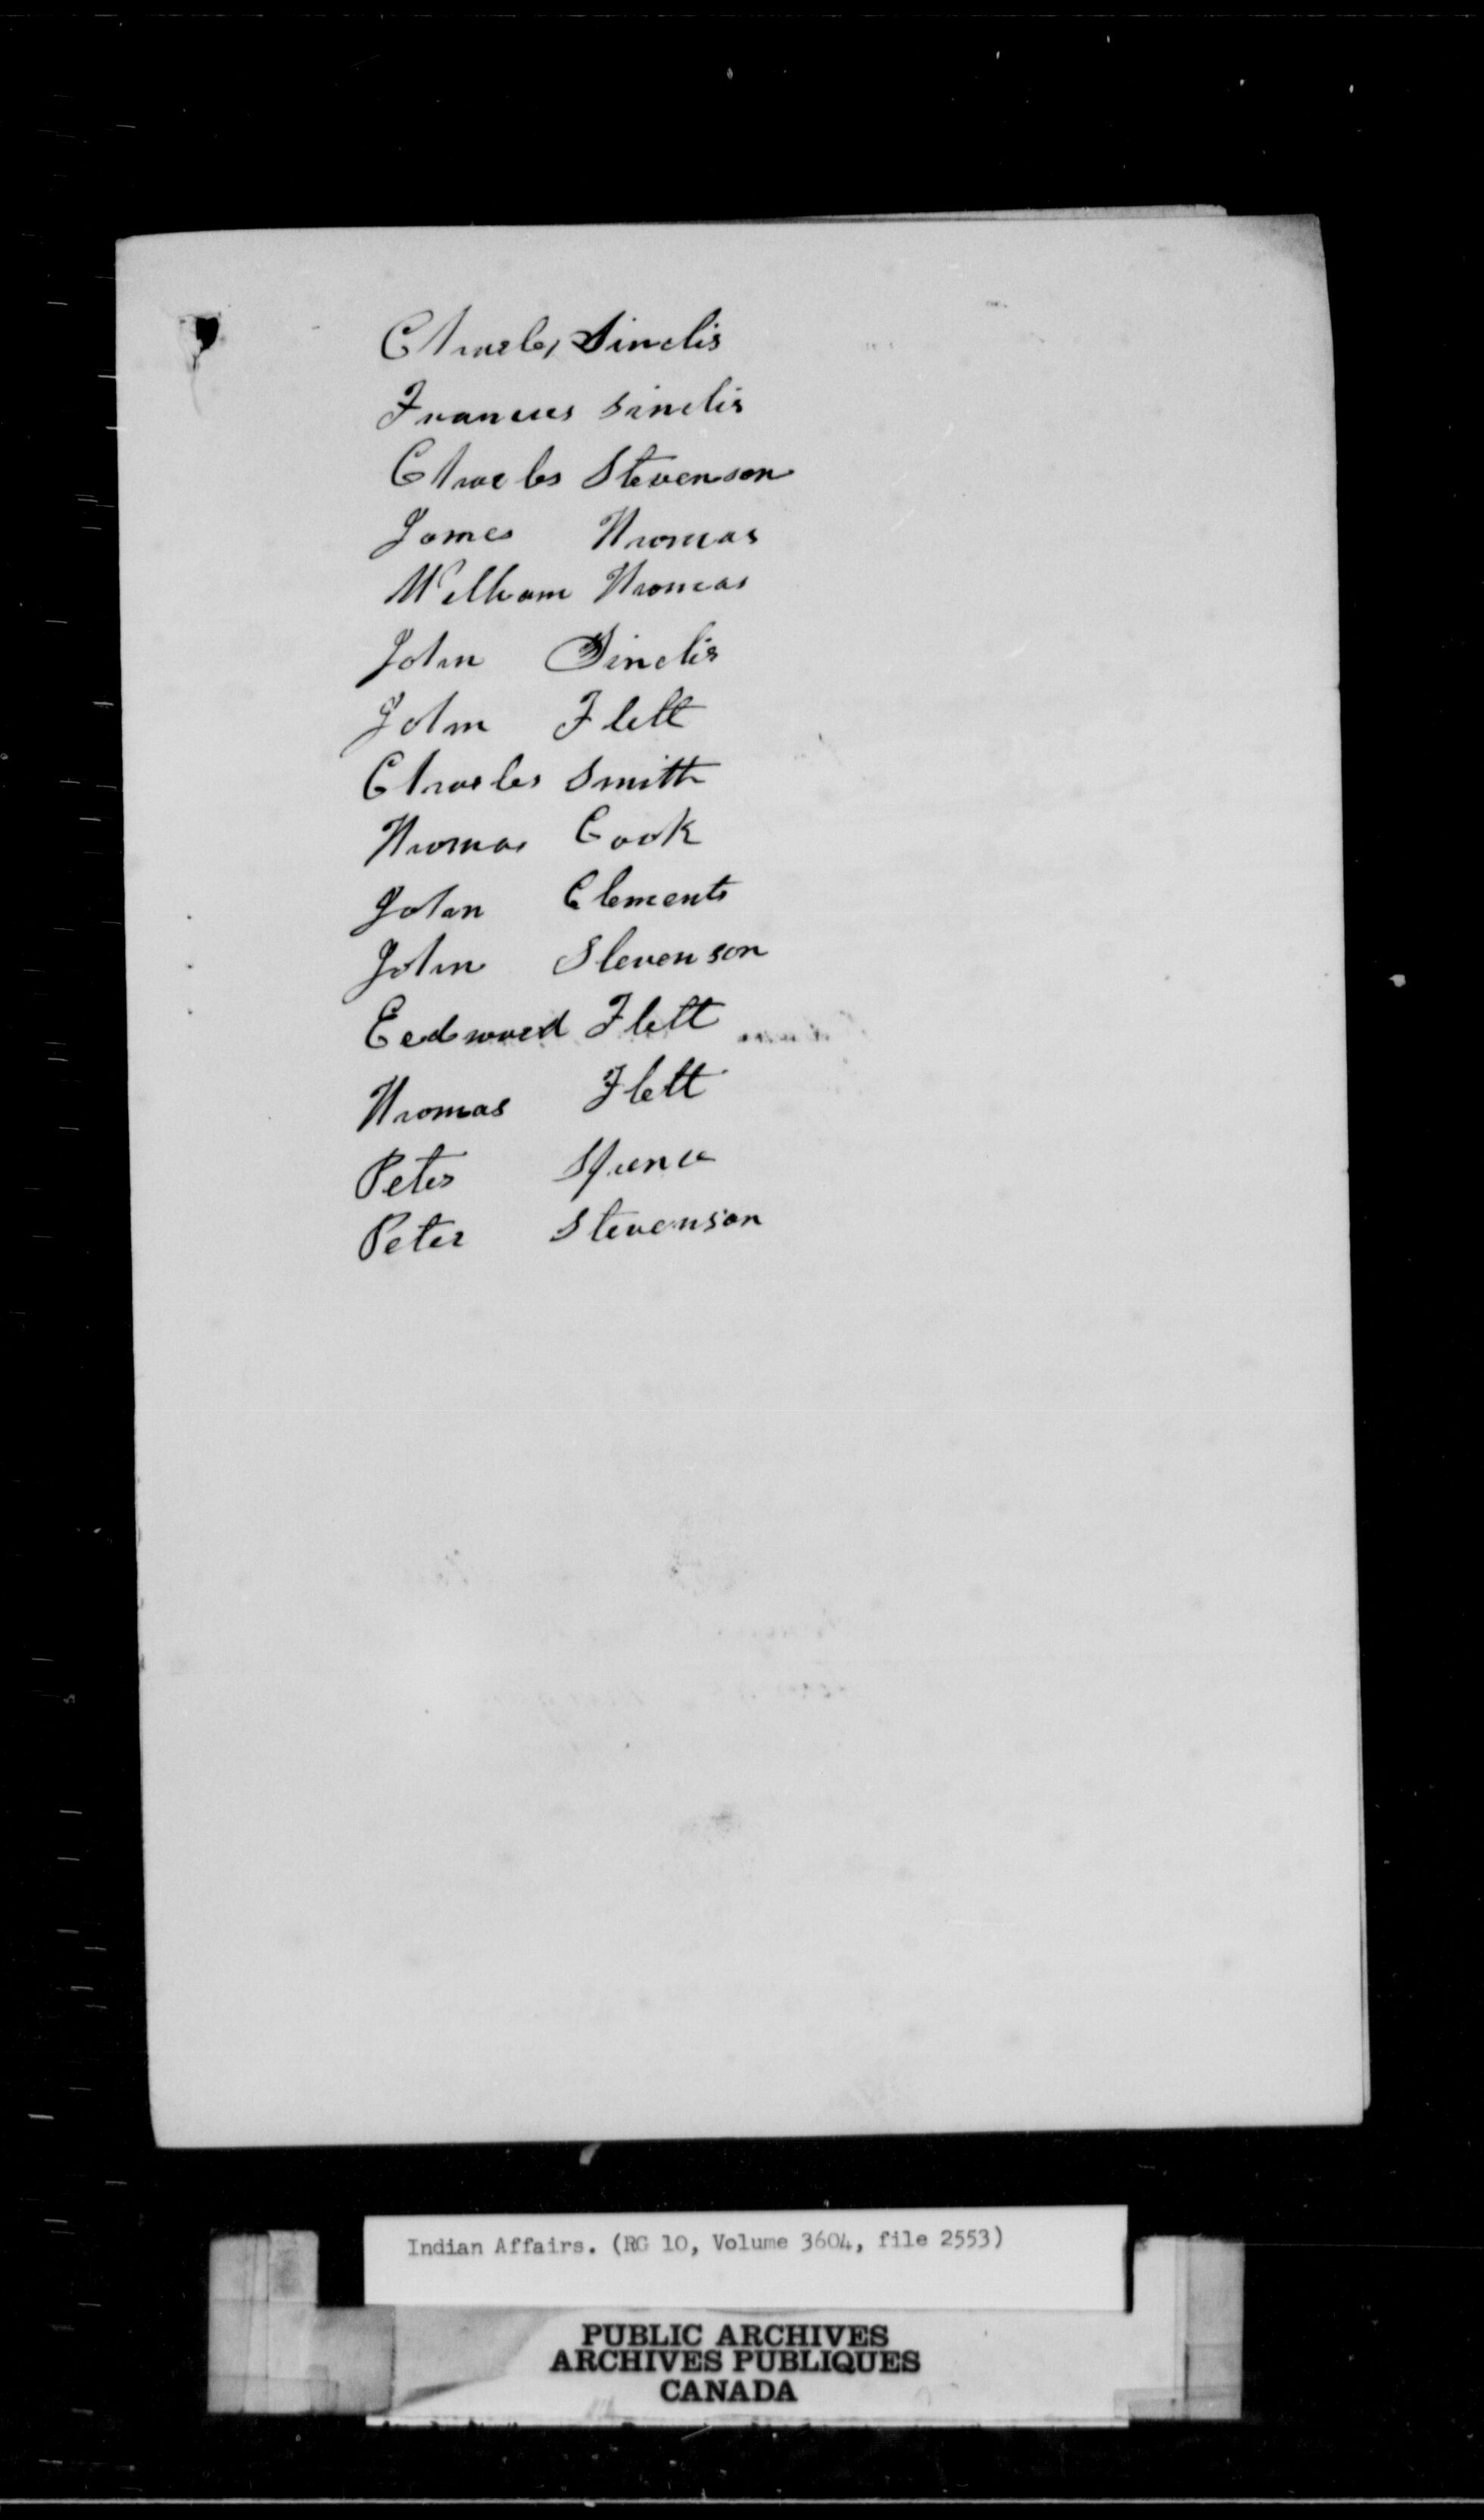 Charles Sinclis
Francies Sinclis
Charles Stevenson
James Thomas
William Thomas
John Sinclis
John Flett
Charles Smith
Thomas Cook
John Clements
John Stevenson
Eedward Flett
Thomas Flett
Peter Spence
Peter Stevenson
Indian Affairs. (RG 10, Volume 3604, file 2553)
PUBLIC ARCHIVES
ARCHIVES PUBLIQUES
CANADA